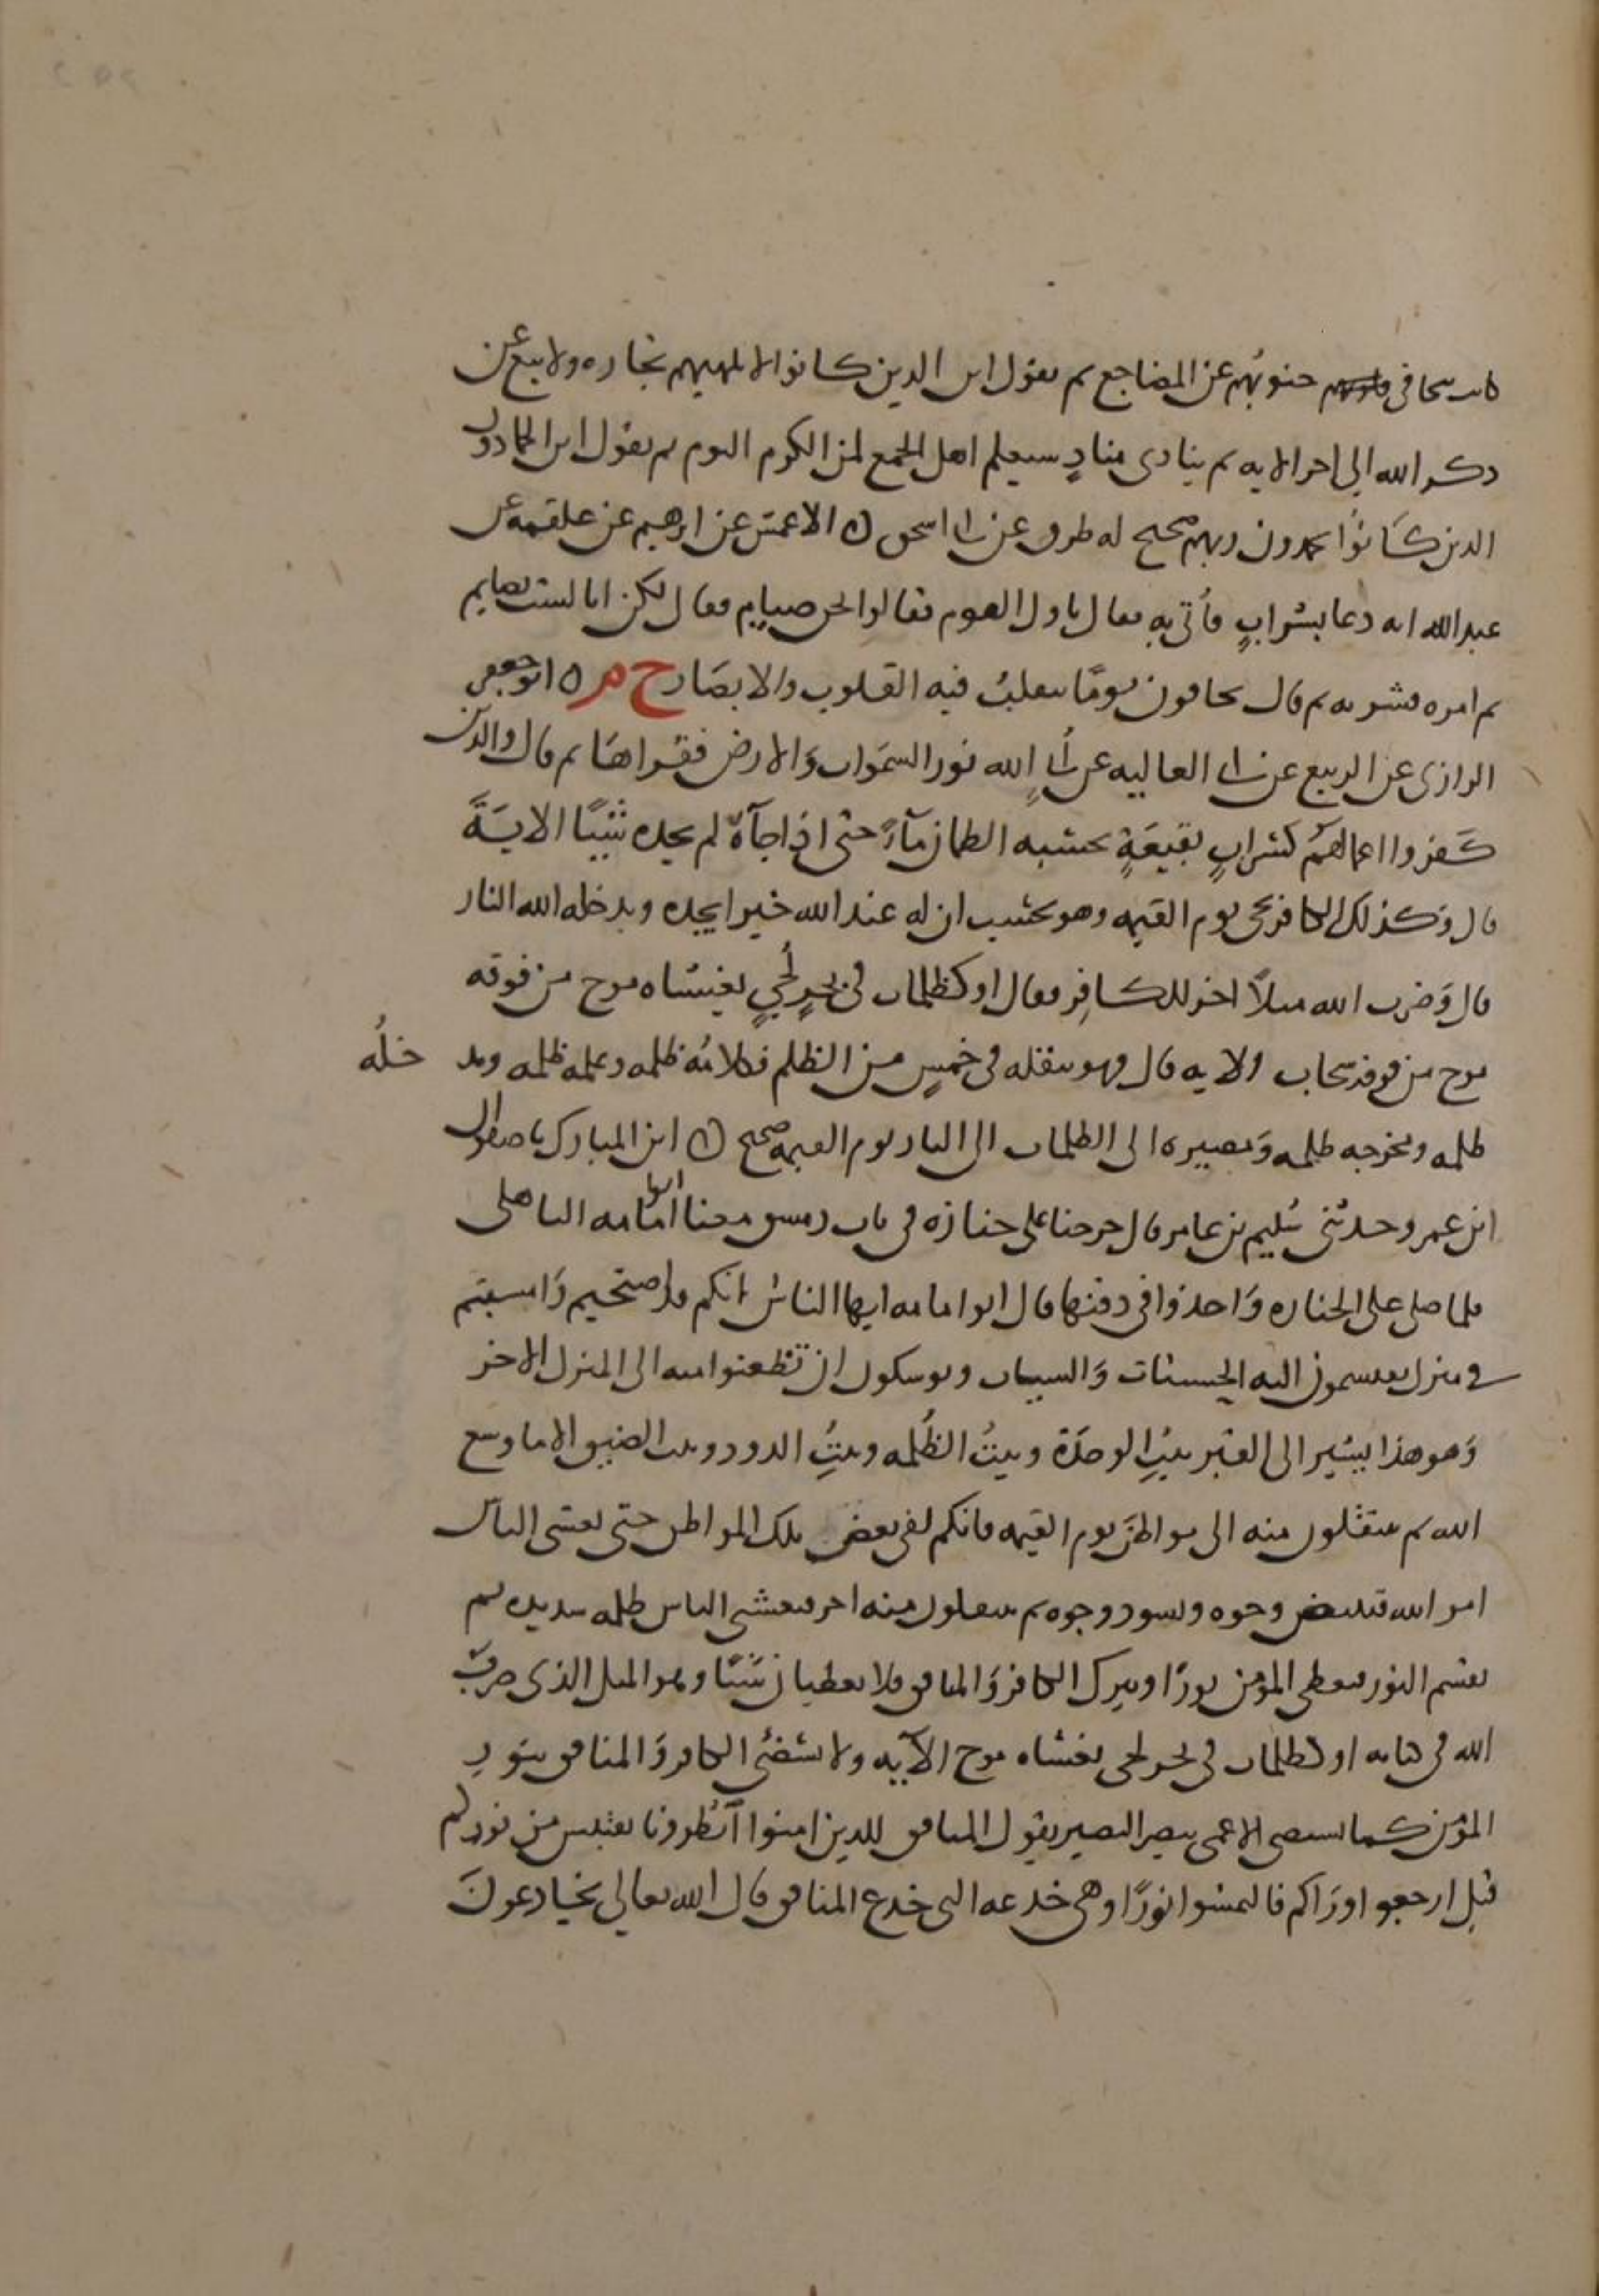 كانت تتجافى جنوبهم عن المضاجع ثم يقول اين الذين كانوا لا تلهيهم تجاره ولا بيع عن
ذكر الله الى اخر الايه ثم ينادى منادٍ سيعلم اهل الجمع لمن الكرم اليوم ثم يقول اين الحمادون
الذين كَانوُا يحمدون ربهم صحيح له طرق عن ابى اسحق ن الاعمش عن ابرهيم عن علقمه عن
عبد الله انه دعا بشرابٍ فأتى به فقال ناول القوم فقالوا نحن صيام فقال لكن انا لست بصايم
ثم امره فشربه ثم قال يخافون يومًا تتقلبُ فيه القلوب والابصَار خ م ن ابو جعفر
الرازى عن الربيع عن ابى العاليه عن أُبىٍ الله نور السمَوات وَالارض فقراهَا ثم قال والذين
كَفروا اعمالهمُ كسَرابٍ بقيعَةٍ يحسَبه الظمان مآءً حتى اذا جآهُ لم يجده شيًا الايَةَ
قال وَكذلك الكافر يجى يوم القيمه وهو يحسب ان له عند الله خيرا يجده ويدخله الله النار
قال وَضرب الله مثلاً اخر للكافِر فقال او كظلمات فى بحرٍ لُجىٍ يغشاه موج من فوقه
موج من فوقه سحاب الايه قال فهو ينقله فى خمسٍ من الظلم فكلامُه ظلمه وعمله ظلمه ومد خلُه
ظلمه ومخرجه ظلمه وَمصيره الى الظلمات الى النار يوم القيمه صحيح ن ابن المبارك نا صفوان
ابن عمرو حدثنى سُليم بن عامر قال خرجنا على جنازه فى باب دمشق معنا ابوا امامه الباهلى
فلما صلى على الجنازه وَاخذوا فى دفنها قال ابو امامه ايها الناس انكم قد اصبَحتم وَامسيتم
فى منزل تقتسمون اليه الحسنات وَالسيات وتوسكون ان تَظعنوا منه الى المنزل الاخر
وَهو هذا يشير الى القبر بيتِ الوحدَة وبيتُ الظُلمه وبيتُِ الدود وبيت الضيق الا ما وسع
الله ثم تنتقلون منه الى مواطن يوم القيمه فانكم لفى بعض تلك المواطن حتى يغشى الناس
امر الله فتبيض وجوه وتسود وجوه ثم تنتقلون منه اخر فيغشى الناس ظلمه شديده ثم
يقسم النور فيعطى المؤمن نورًا ويترك الكافر وَالمنافق فلا يعطيان شيَئًا وهو المثل الذى ضربَ
الله فى كتابه او كظلمات فى بحر لجى يغشاه موج الآيه ولا يستضئ الكافر وَالمنافق بنورِ
المؤمن كما لا يستضى الاعمى ببصر البصير يقول المنافق للذين امنوا اُنظُرونا نقتبس من نوركم
قيل ارجعوا ورَاكم فالتمسوا نورًا وهى خدعه التى خدع المنافق قال الله تعالى يخَادعونَ